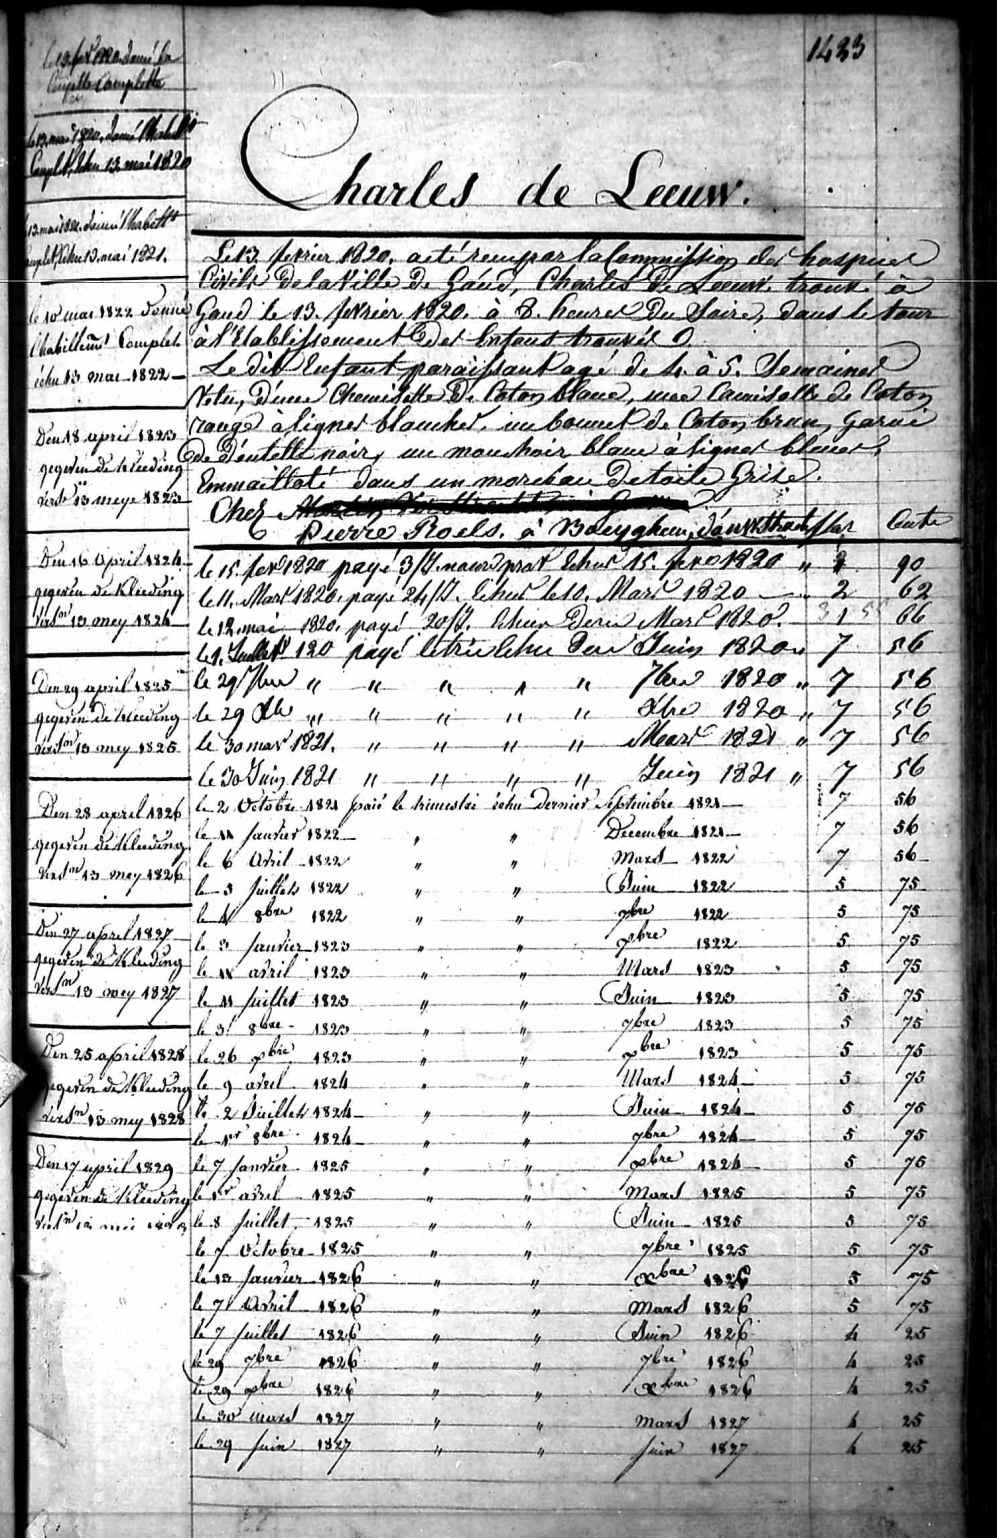 1433
Charles de Leeuw.
Le 13. fevrier 1820. a eté reçu par la Commission des hospices
Civils de la Ville de Gand, Charles De Leeuw. trouvé à
Gand le 13. fevrier 1820. à 8. heures Du Soire, dans le tour
à l'Etablissement des Enfans trouvés
Le dit Enfant paraissant agé de 4. à 5. Semaines
Vetu, d'une Chemisette De Coton blanc, une Camisolle de Coton
rouge à lignes blanches, un bonnet de Coton brun, garni
de Dentelle noir, un mouchoir blanc à lignes bleues,
Emmailloté dans un morceau De toile Grise.
Chez
Pierre Roels. à Cents
le 15. fevr 1820 payé Echus 15. fevr 1820 " 90
le 11. Mars 1820. payé 24/J. Echus le 10. Mars 1820 " 2 62
le 12. mai 1820. payé 20/J. Echus Mars 1820. 1 66
payé Juin 1820 " 7 56
le 29 " " " " " 7bre 1820 " 7 56
le 29 Xbr " " " " " Xbre 1820 " 7 56
le 30 mars 1821. " " " " Mars 1821 " 7 56
le 30 Juin 1821 " " " " Juin 1821 " 7 56
le 2 Octobre 1821 paié le trimestre échu dernier Septembre 1821 7 56
le 11 Janvier 1822 " " Decembre 1821 7 56
le 6 Avril 1822 " " Mars 1822 7 56
le 5 Juillet 1822 " " Juin 1822 5 75
le 4 8bre 1822 " " 7bre 1822 5 75
le 3 Janvier 1823 " " xbre 1822 5 75
le avril 1823 " " Mars 1823 5 75
le 11 Juillet 1823 " " Juin 1823 5 75
le 3 8bre 1823 " " 7bre 1823 5 75
le 26 xbre 1823 " " xbre 1823 5 75
le 9 avril 1824 " " Mars 1824 5 75
le 2 Juillet 1824 " " Juin 1824 5 75
le 1er 8bre 1824 " " 7bre 1824 5 75
le 7 Janvier 1825 " " xbre 1824 5 75
le 1r avril 1825 " " Mars 1825 5 75
le 8 Juillet 1825 " " Juin 1825 5 75
le 7 Octobre 1825 " " 7bre 1825 5 75
le 13 Janvier 1826 " " xbre 1826 5 75
le 7 Avril 1826 " " Mars 1826 5 75
le 7 Juillet 1826 " " Juin 1826 4 25
le 29 7bre 1826 " " 7bre 1826 4 25
le 29 xbre 1826 " " xbre 1826 4 25
le 30 mars 1827 " " Mars 1827 4 25
le 29 Juin 1827 " " Juin 1827 4 25
Complette
Complet. Echu 13 mai 1820
Complet. Echu 13. mai 1821.
le 10 mai 1822 Donné
l'habillemt Complet
échu 13 mai 1822
Den 18 april 1823
gegeven de kleeding
versn 13 meye 1823
Den 16 April 1824
gegeven de Kleeding
versn 13 mey 1824
Den 29 april 1825
gegeven de Kleeding
versn 13 mey 1825
Den 28 april 1826
gegeven de Kleeding
versn 13 mey 1826
Den 27 april 1827
gegeven de Kleeding
versn 13 mey 1827
Den 25 april 1828
gegeven de Kleeding
versn 13 mey 1828
Den 17 april 1829
gegeven de Kleeding